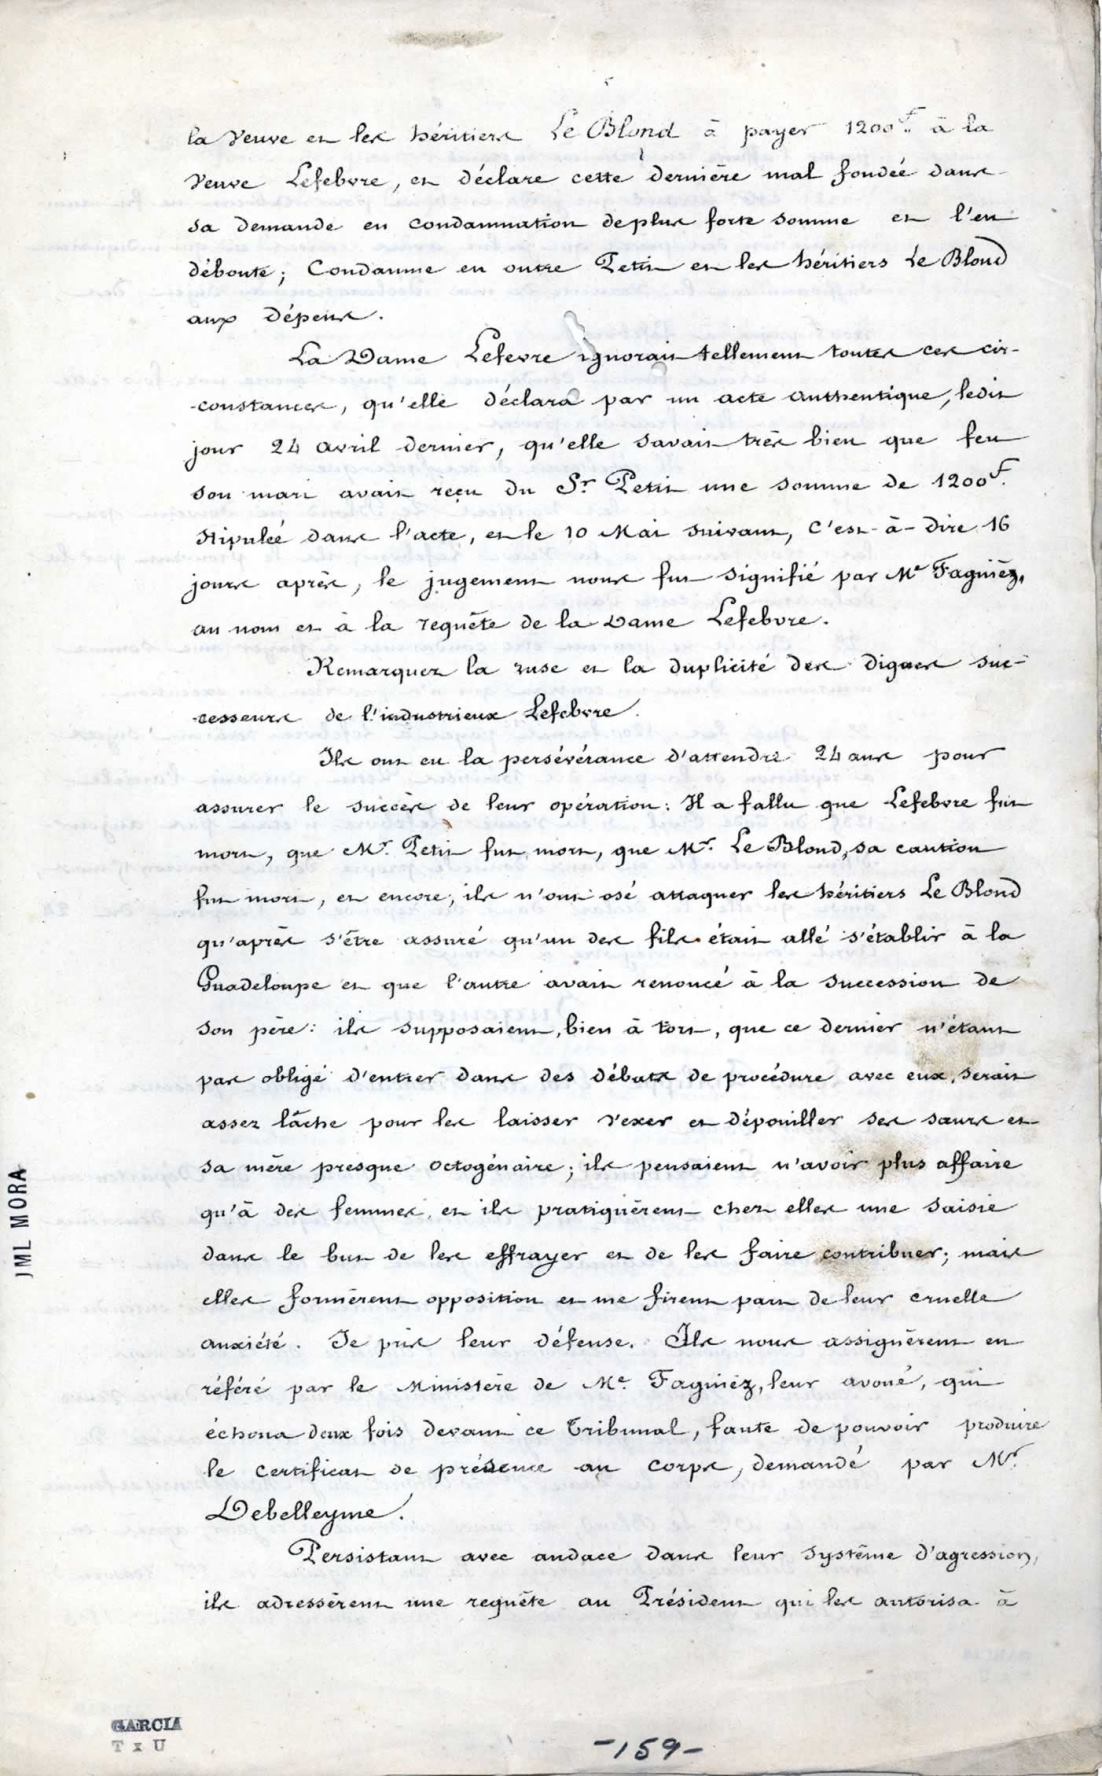 la Veuve et les héritiers Le Blond à payer 1200f. à la
Veuve Lefebvre, et déclare cette dernière mal fondée dans
sa demande en condamnation de plus forte somme et l'en
déboute; Condamne en outre Petit et les héritiers Le Blond
aux dépens.
La Dame Lefevre ignorait tellement toutes ces cir-
-constances, qu'elle déclara par un acte authentique, ledit
jour 24 avril dernier, qu'elle savait très bien que feu
son mari avait reçu du Sr. Petit une somme de 1200f.
stipulée dans l'acte, et le 10 Mai suivant, C'est-à-dire 16
jours après, le jugement nous fut signifié par Me Fagniéz,
au nom et à la requête de la Dame Lefebvre.
Remarquez la ruse et la duplicité des dignes suc-
-cesseurs de l'industrieux Lefebvre.
Ils ont eu la persévérance d'attendre 24 ans pour
assurer le succès de leur opération: Il a fallu que Lefebvre fut
mort, que Mr. Petit fut mort, que Mr. Le Blond, sa caution
fut mort, et encore, ils n'ont osé attaquer les héritiers Le Blond
qu'après s'être assuré qu'un des fils était allé s'établir à la
Guadeloupe et que l'autre avait renoncé à la succession de
son père: ils supposaient, bien à tort, que ce dernier n'étant
pas obligé d'entrer dans des débats de procédure avec eux, serait
assez lâche pour les laisser vexer et dépouiller ses sœurs et
sa mère presque octogénaire; ils pensaient n'avoir plus affaire
qu'à des femmes, et ils pratiquèrent chez elles une saisie
dans le but de les effrayer et de les faire contribuer; mais
elles formèrent opposition et me firent part de leur cruelle
anxiété. Je pris leur défense. Ils nous assignèrent en
référé par le Ministère de Me. Fagniéz, leur avoué, qui
échoua deux fois devant ce Tribunal, faute de pouvoir produire
le certificat de présence au corps, demandé par Mr.
Debelleyme.
Persistant avec audace dans leur système d'agression,
ils adressèrent une requête au Président qui les autorisa à
JML MORA
GARCIA
T x U
-159-